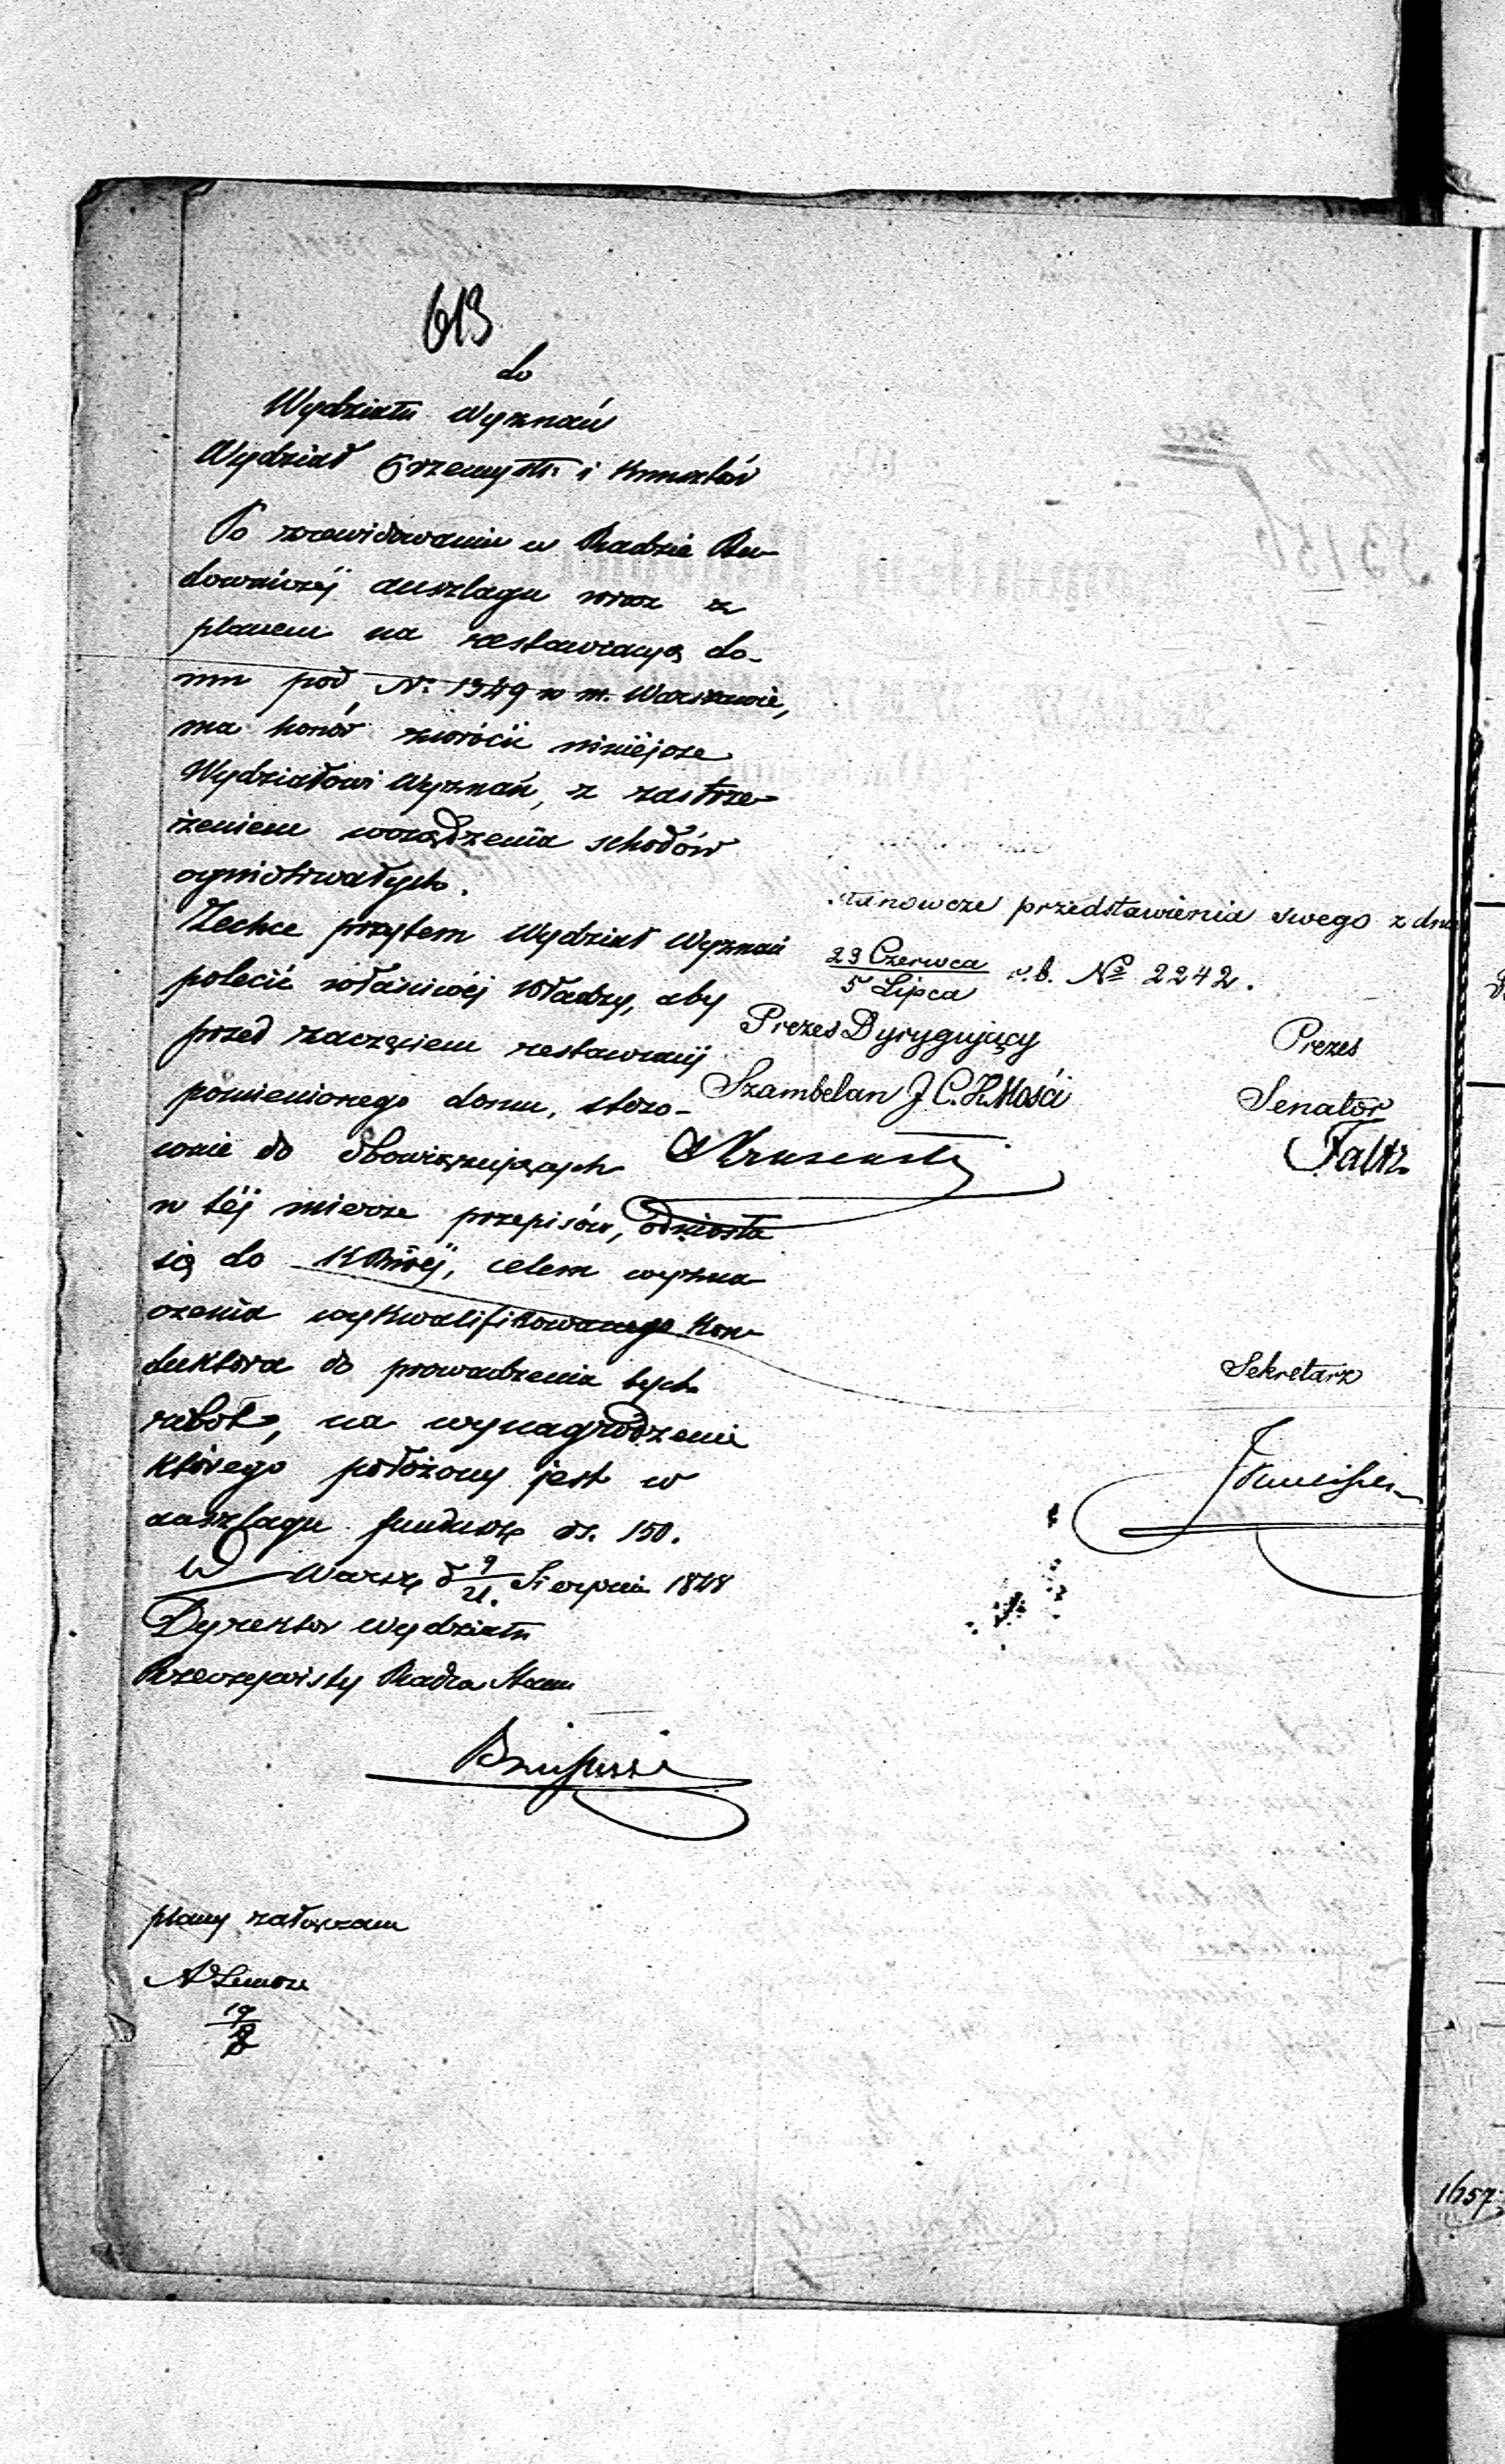 613
do
Wydziału Wyznań
Wydział Przemysłu i Kunsztów
Po zrewidowaniu w Radzie Bu-
downiczéj anszlagu wraz z
planem na restauracyą do-
mu pod N: 1349 w m. Warszawie,
ma honor zwrócić niniéjsze
Wydziałowi Wyznań, z zastrze-
żeniem urządzenia schodów
ogniotrwałych.
Zechce przytem Wydział Wyznań
polecić właściwéj Władzy, aby
przed zaczęciem restauracyi
pomienionego domu, stoso-
wnie do obowiązujących
w téj mierze przepisów, odniosła
się do K Rząéj, celem wyzna-
czenia wykwalifikowanego Kon-
duktora do prowadzenia tych
robót, na wynagrodzenie
którego położony jest w
anszlagu fundusz rs. 150.
w Warsz. d 9/21. Sierpnia 1848
Dyrektor Wydziału
Rzeczywisty Radca Stanu
plany załączam
19/8
stanowcze przedstawienia swego z dnia
23 Czerwca/5 Lipca r.b. Nº 2242.
Prezes Dyrygujący
Szambelan J. C. K. Mości
Prezes
Senator
Faltz
Sekretarz
1657